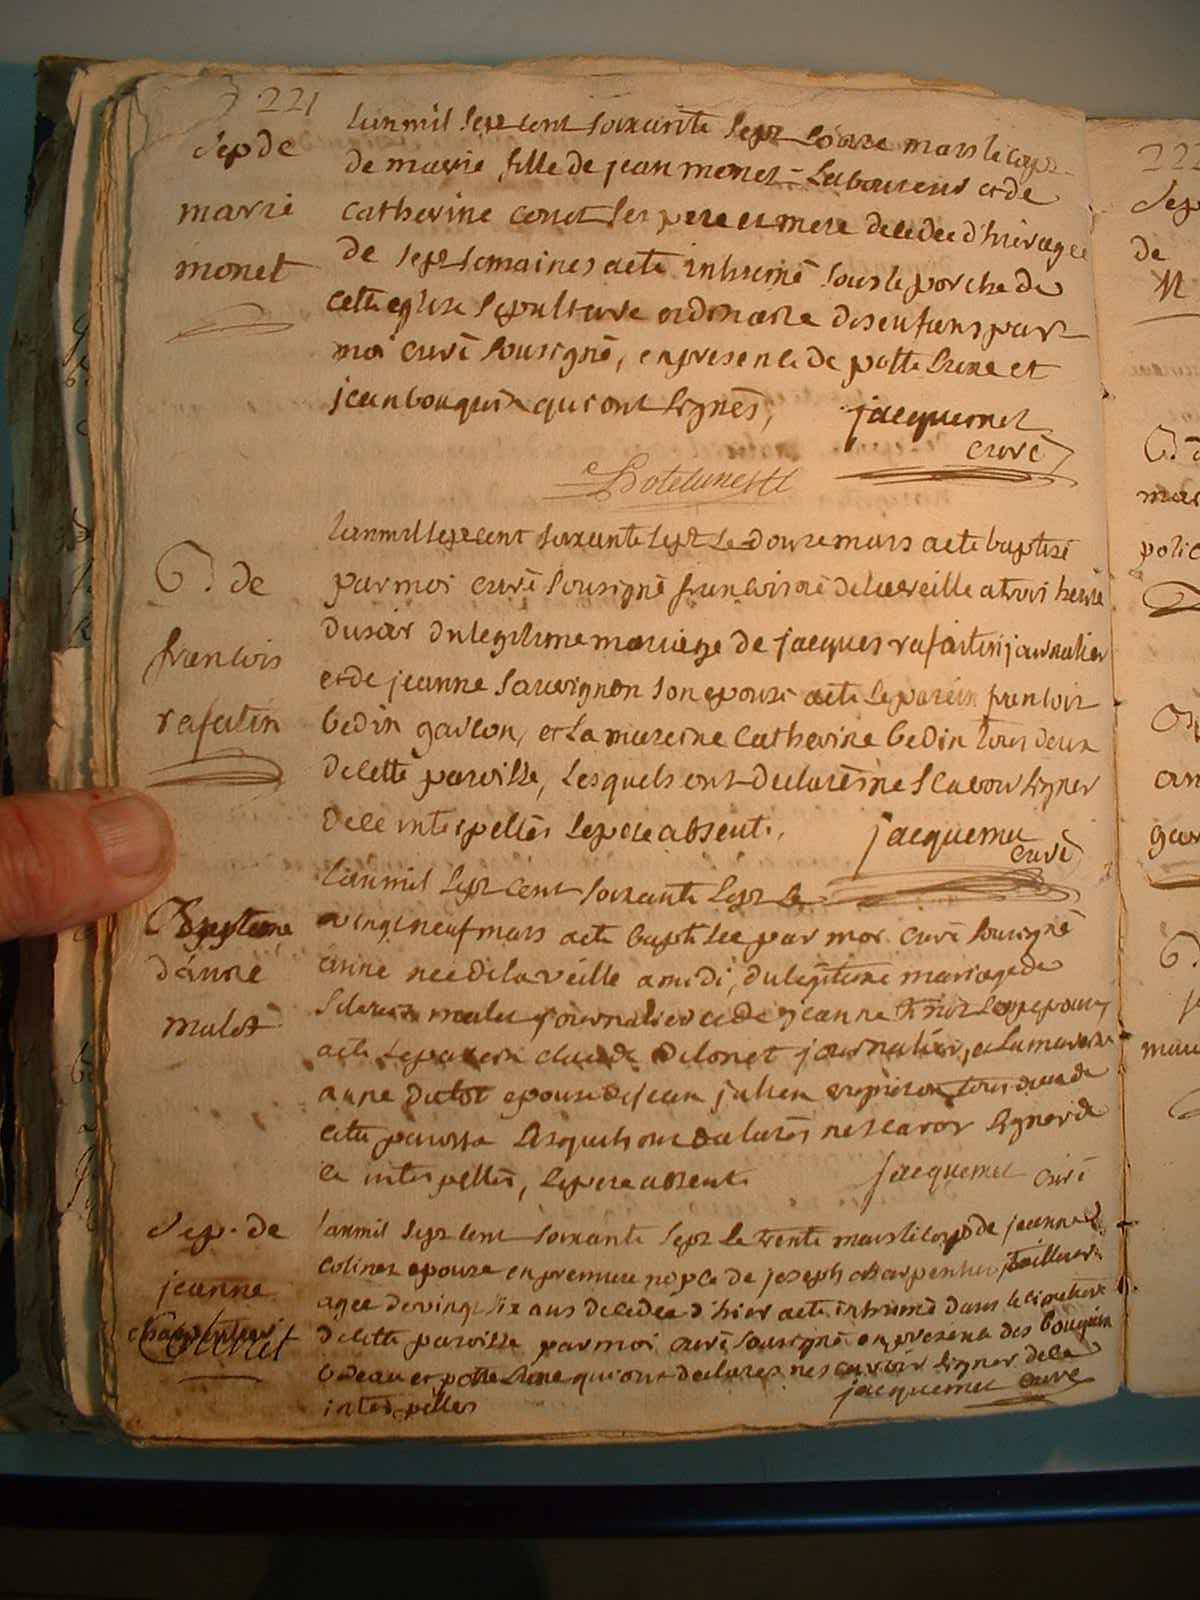 221
Sep de
marie
monet
Lanmil sept cent soixante sept mars le corps
de marie fille de jean monet Laboureur et de
Catherine conet ses pere et mere decedee d'hier agee
de sept semaines a ete inhumé sous le porche de
cette eglise sepulture ordinaire des enfans par
moi curé soussigné, en presence de potte Lune et
jean bouquin qui ont signés,
jacquemet
curé
Potelunette
B. de
francois
rafatin
Lanmil sept cent soixante sept Le douze mars a ete baptisé
par moi curé soussigné francois né de la veille a trois heure
du soir du legitime mariage de jacques rafatin journalier
et de jeanne sauvignon son epouse a ete Le parein francois
bedin garcon, et La mareine Catherine bedin tous deux
de cette paroisse, Lesquels ont declarés ne scavoir signer
de ce interpellés Le pere absent.
jacquemet
curé
Bapteme
d'anne
malot
Lanmil sept cent soixante sept Le
vingt neuf mars a ete baptisée par moi curé soussigné
anne nee de la veille a midi, du legitime mariage de
malot journalier et de jeanne son epouse
a ete Le parein claude delonet journalier, et La mareine
anne dulot epouse de jean julien vigneron tous deux de
cette paroisse Lesquels ont declarés ne scavoir signer de
ce interpellés, Le pere absent.
jacquemet curé
Sep. de
jeanne
charpentier
Colinet
Lanmil sept cent soixante sept Le trente mars le corps de jeanne
colinet epouse en premiere nopce de joseph charpentier tailleur
agee de vingt six ans decedee d'hier a ete inhumé dans le cimetiere
de cette paroisse par moi curé soussigné en presence des bouquin
bedeau et potte Lune qui ont declarés ne scavoir signer de ce
interpellés
jacquemet curé
222
Sep
de
M
B. d
mar
polic
an
gar
B.
mau